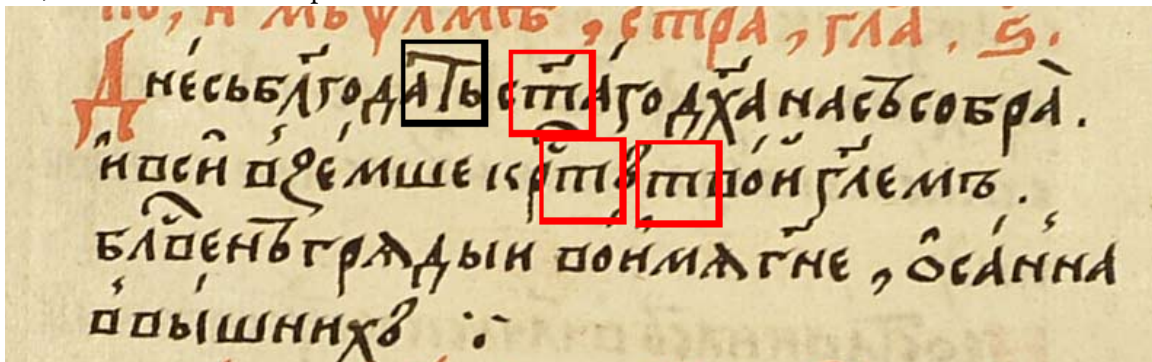 мъ ѱлмѣ , стра , гл҃а . ѕ҃ .
Дне́сь бл҃года́ть ст҃а́го дх҃а на́съ собра̀ .
и҆ вси́ взе́мше кр҃тъ тво́й гл҃емъ .
бл҃ве́нъ грѧды́и во́ и҆мѧ гн҃е , ѻ҆са́нна
в вы́шнихъ :·